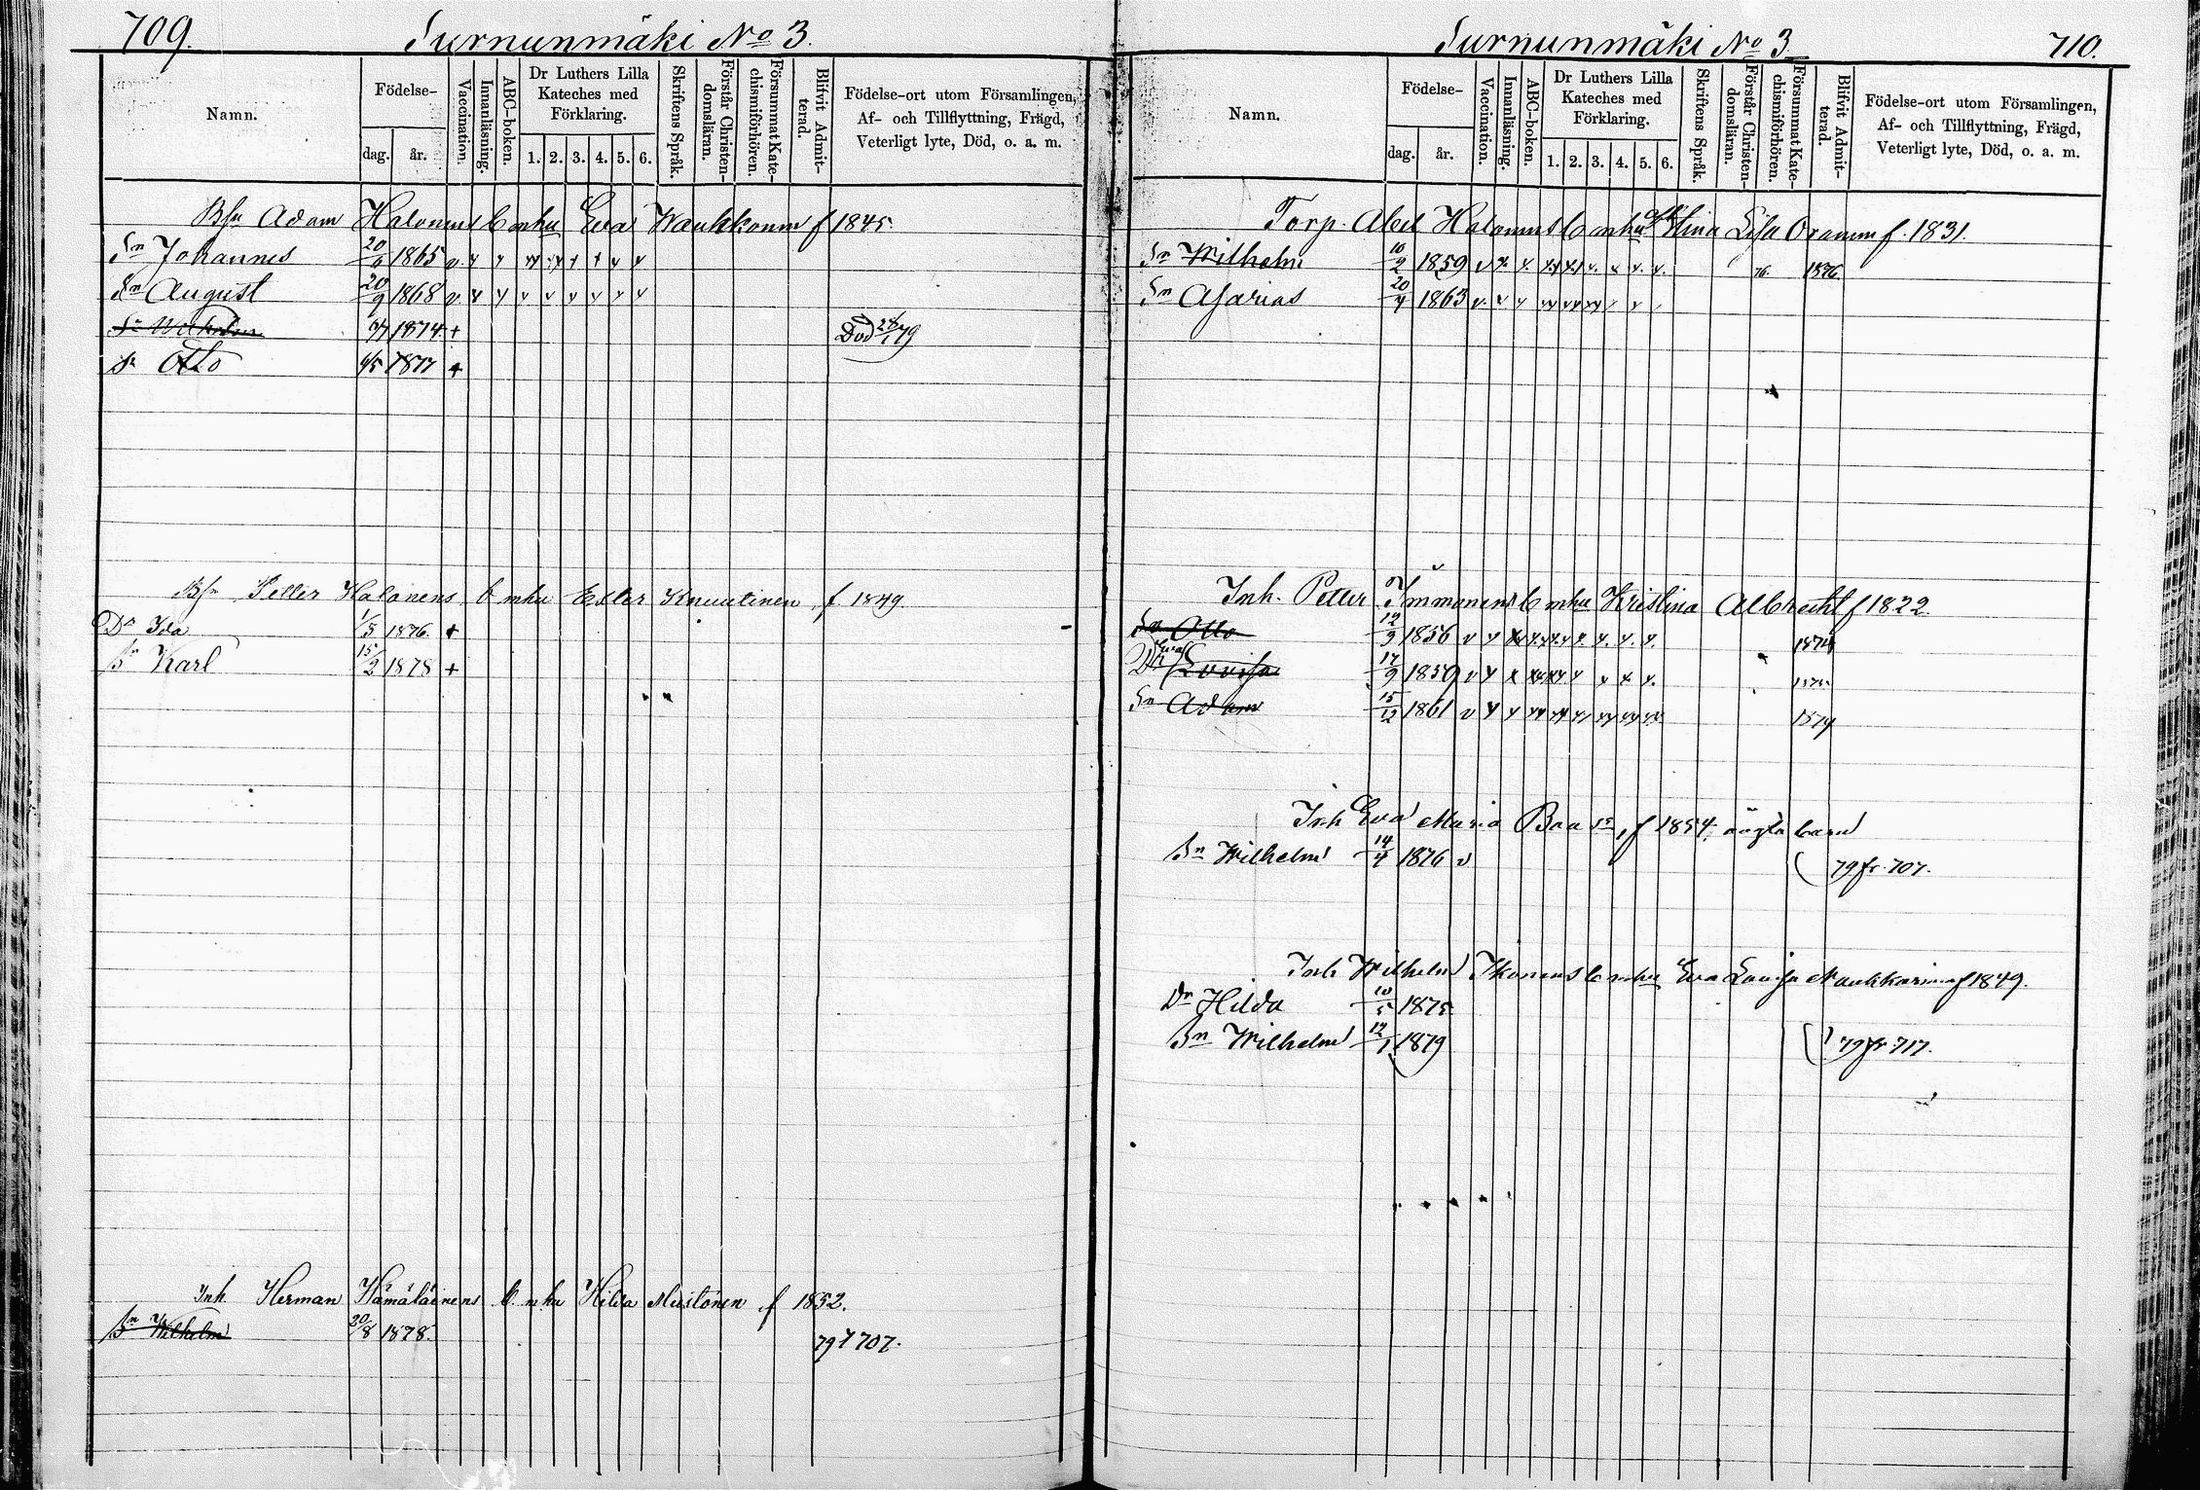 709.
Surnunmäki No 3.
Namn.
Födelse-
dag. år.
Vaccination.
Innanläsning.
ABC-boken.
Dr Luthers Lilla
Kateches med
Förklaring.
1. 2. 3. 4. 5. 6.
Skriftens Språk.
Förstår Christen-
domsläran.
Försummat Kate-
chismiförhören.
Blifvit Admit-
terad.
Födelse-ort utom Församlingen,
Af- och Tillflyttning, Frägd,
Veterligt lyte, Död, o. a. m.
Adam Halonens b mhu Eva f 1845.
Sn Johannes 1865 v
Sn August 20/9 1868 v
Sn Wilhelm 1874 + Död 79
Sn Otto 6/5 1877 +
Petter Halonens b mhu Ester Knuutinen f 1849.
Dr Ida 1/5 1876. +
Sn Karl 15/2 1878 +
Inh Herman Hämäläinens b. mhu Hilda Mustonen f 1852.
Sn Wilhelm 20/8 1878. 79 707.
Surnunmäki No 3
710.
Namn.
Födelse-
dag. år.
Vaccination.
Innanläsning.
ABC-boken.
Dr Luthers Lilla
Kateches med
Förklaring.
1. 2. 3. 4. 5. 6.
Skriftens Språk.
Förstår Christen-
domsläran.
Försummat Kate-
chismiförhören.
Blifvit Admit-
terad.
Födelse-ort utom Församlingen,
Af- och Tillflyttning, Frägd,
Veterligt lyte, Död, o. a. m.
Torp. Abel Halonens b mhu Lisa f. 1831.
Sn Wilhelm 1859 v 76. 1876
Sn Asarias 20/4 1863 v
Inh. Petter Immonens b mhu Kristina Albrecht f 1822.
Sn Otto 12/9 1856 v
Dr Eva Lovisa 17/9 1859 v
Sn Adam 15/12 1861 v 1879
Inh Eva Maria f 1854 oägta barn
Sn Wilhelm 14/4 1876 v 79 fr. 707.
Inh Wilhelm Ikonens b mhu Eva Lovisa Naukkarinen f 1849.
Dr Hilda 10/5 1875
Sn Wilhelm 12/1 1879 79 fr 717.